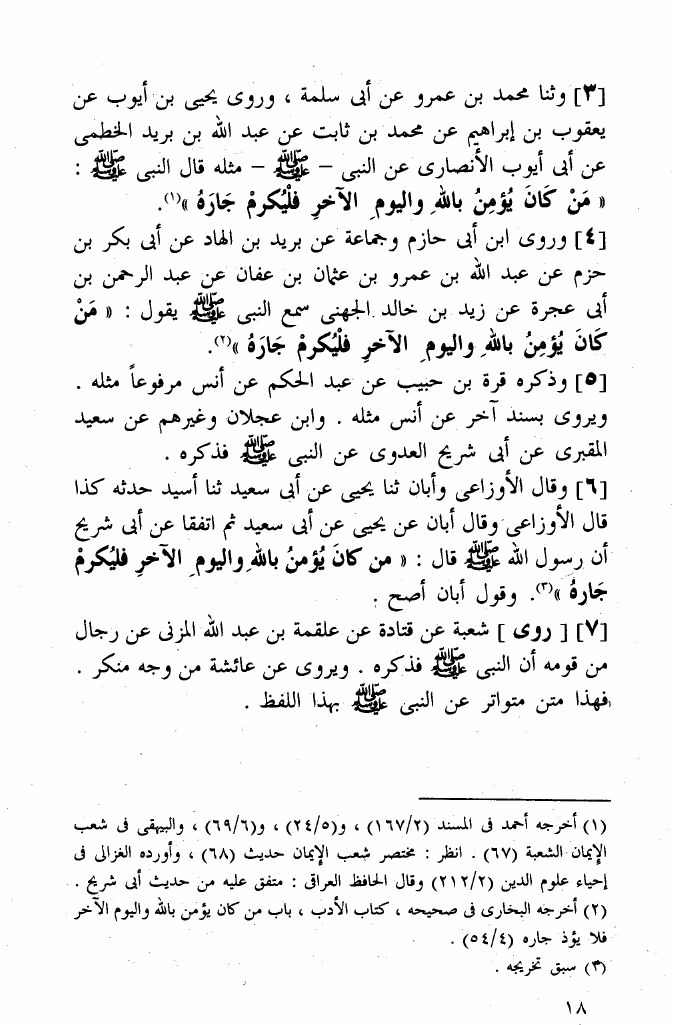 [٣] وثنا محمد بن عمرو عن أبى سلمة ، وروى يحيى بن أيوب عن
يعقوب بن إبراهيم عن محمد بن ثابت عن عبد الله بن بريد الخطمى
عن أبى أيوب الأنصارى عن النبى – ﷺ – مثله قال النبى ﷺ :
« مَنْ كَانَ يُؤْمِنُ باللهِ واليومِ الآخرِ فلْيُكرمْ جَارَهُ »(١).
[٤] وروى ابن أبى حازم وجماعة عن بريد بن الهاد عن أبى بكر بن
حزم عن عبد الله بن عمرو بن عثمان بن عفان عن عبد الرحمن بن
أبى عجرة عن زيد بن خالد الجهنى سمع النبى ﷺ يقول : « مَنْ
كَانَ يُؤمِنُ باللهِ واليومِ الآخرِ فلْيُكرمْ جَارَهُ »(٢).
[٥] وذكره قرة بن حبيب عن عبد الحكم عن أنس مرفوعاً مثله .
ويروى بسند آخر عن أنس مثله . وابن عجلان وغيرهم عن سعيد
المقبرى عن أبى شريح العدوى عن النبى ﷺ فذكره .
[٦] وقال الأوزاعى وأبان ثنا يحيى عن أبى سعيد ثنا أسيد حدثه كذا
قال الأوزاعى وقال أبان عن يحيى عن أبى سعيد ثم اتفقا عن أبى شريح
أن رسول الله ﷺ قال : « من كانَ يُؤمنُ باللهِ واليومِ الآخرِ فليُكرمْ
جَارهُ »(٣). وقول أبان أصح .
[٧] [ روى ] شعبة عن قتادة عن علقمة بن عبد الله المزنى عن رجال
من قومه أن النبى ﷺ فذكره . ويروى عن عائشة من وجه منكر .
فهذا متن متواتر عن النبى ﷺ بهذا اللفظ .
(١) أخرجه أحمد فى المسند (١٦٧/٢) ، و(٢٤/٥) ، و(٦٩/٦) ، والبيهقى فى شعب
الإيمان الشعبة (٦٧) . انظر : مختصر شعب الإيمان حديث (٦٨) ، وأورده الغزالى فى
إحياء علوم الدين (٢١٢/٢) وقال الحافظ العراق : متفق عليه من حديث أبى شريح .
(٢) أخرجه البخارى فى صحيحه ، كتاب الأدب ، باب من كان يؤمن بالله واليوم الآخر
فلا يؤذ جاره (٥٤/٤) .
(٣) سبق تخريجه .
١٨